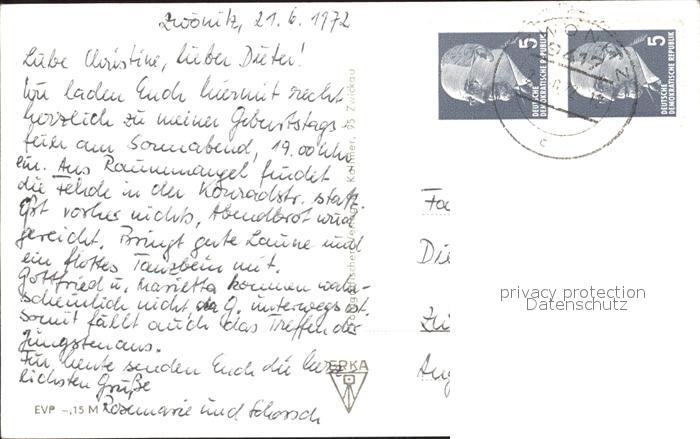 Zwönitz, 21.6.1972
Liebe Christine, lieber Dieter!
Wir laden Euch hiermit recht
herzlich zu meiner Geburtstags-
feier am Sonnabend, 19.00 Uhr
ein. Aus Raummangel findet
die Fehde in der Konradstr. statt.
Eßt vorher nichts, Abendbrot wird
gereicht. Bringt gute Laune und
ein flottes Tanzbein mit.
Gottfried u. Marietta kommen wahr-
scheinlich nicht da G. unterwegs ist.
Somit fällt auch das Treffen der
Jüngsten aus.
Für heute senden Euch die herz-
lichsten Grüße
Rosemarie und Schorsch
EVP -,15 M
ERKA
Kallmer, 95 Zwickau
5
DEUTSCHE
DEMOKRATISCHE REPUBLIK
5
DEUTSCHE
DEMOKRATISCHE REPUBLIK
9417
c
Fa
Die
privacy protection
Datenschutz